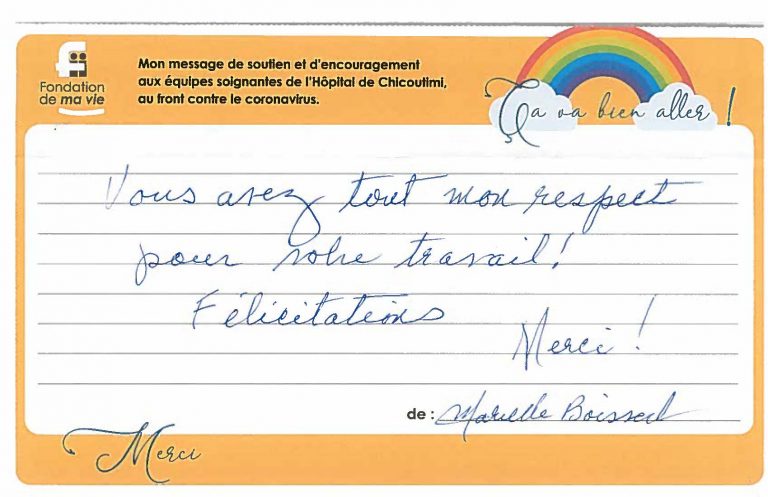 Fondation
de ma vie
Mon message de soutien et d'encouragement
aux équipes soignantes de l'Hôpital de Chicoutimi,
au front contre le coronavirus.
Ça va bien aller !
Vous avez tout mon respect
pour votre travail!
Félicitations
Merci !
de : Marielle
Merci